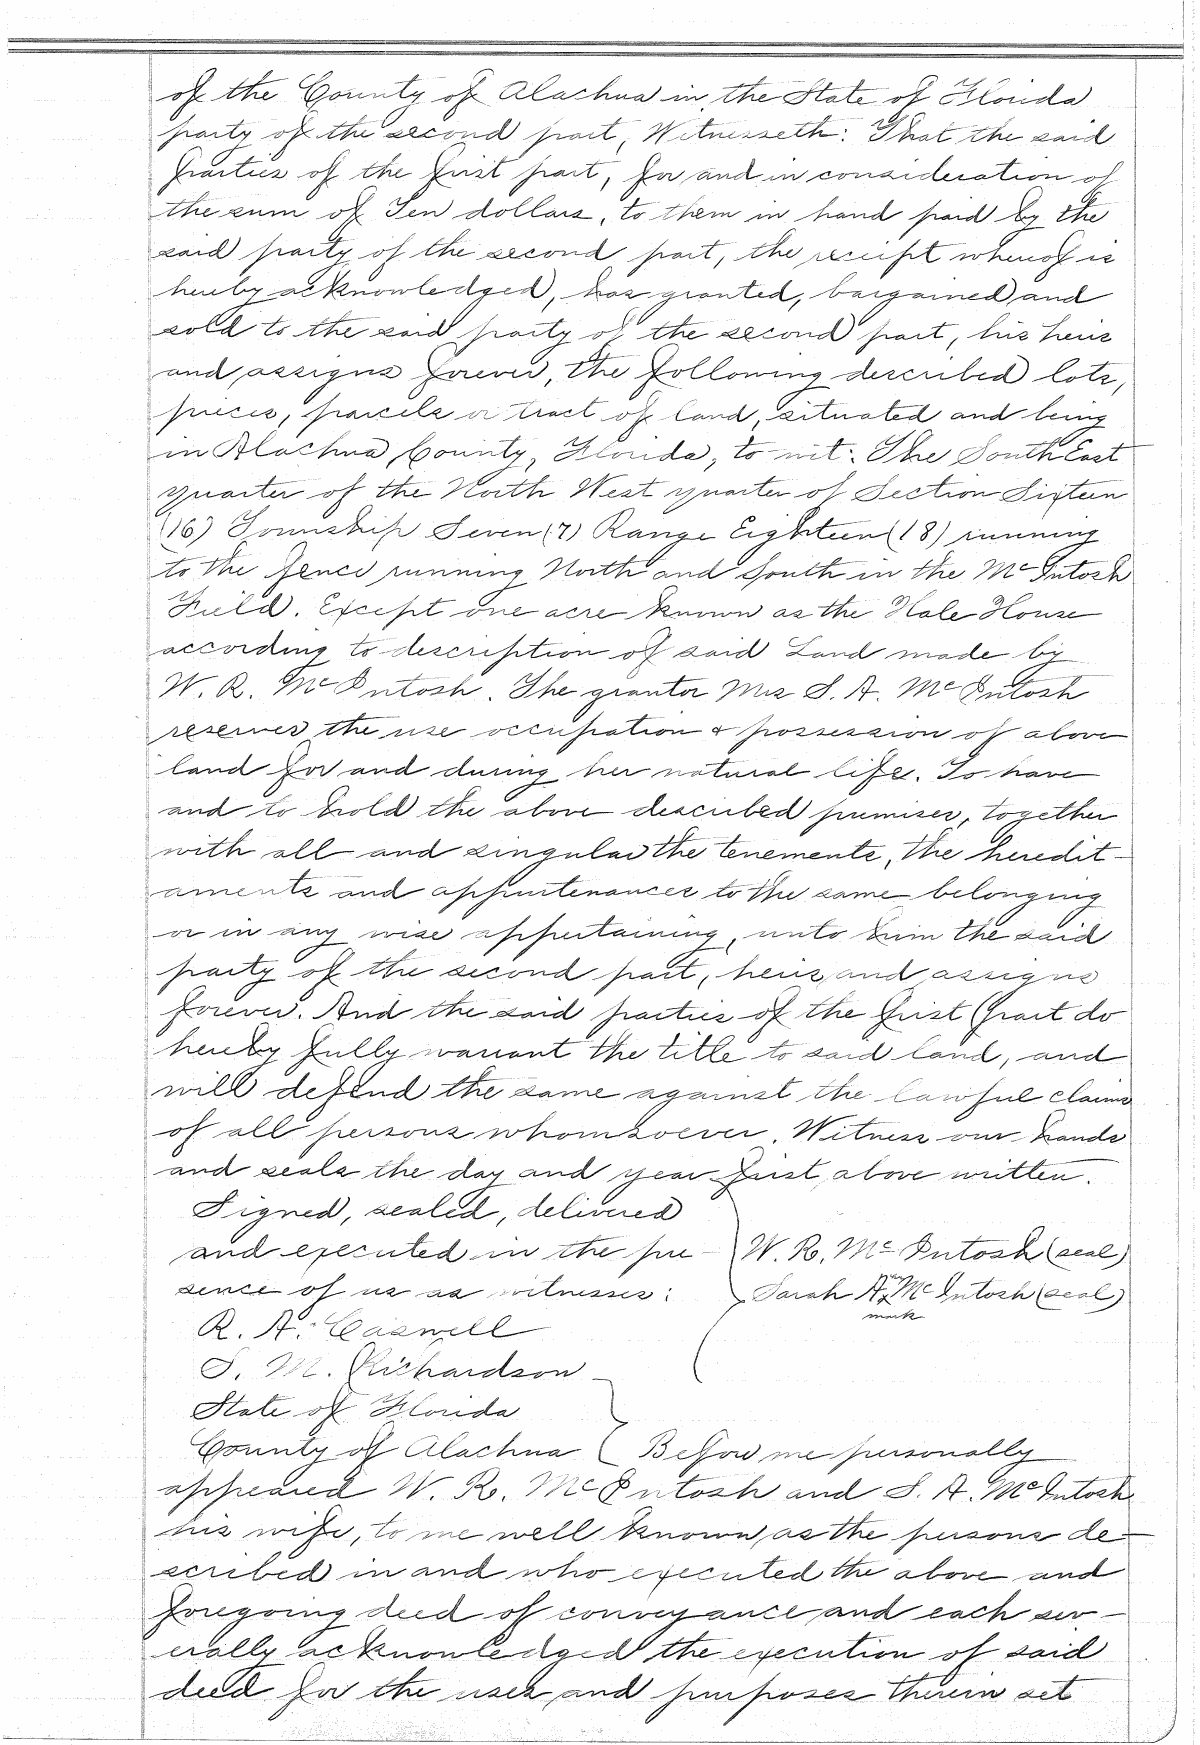 of the County of Alachua in the State of Florida
party of the second part, Witnesseth: That the said
parties of the first part, for and in consideration of
the sum of Ten dollars, to them in hand paid by the
said party of the second part, the receipt whereof is
hereby acknowledged, has granted, bargained and
sold to the said party of the second part, his heirs
and assigns forever, the following described lots,
pieces, parcels or tract of land, situated and being
in Alachua County, Florida, to wit: The South East
quarter of the North West quarter of Section Sixteen
(16) Township Seven (7) Range Eighteen (18) running
to the fence running North and South in the McIntosh
Field. Except one acre known as the Hale House
according to description of said Land made by
W. R. McIntosh. The grantor Mrs S. A. McIntosh
reserves the use occupation & possession of above
land for and during her natural life. To have
and to hold the above described premises, together
with all and singular the tenements, the heredit-
aments and appurtenances to the same belonging
or in any wise appertaining, unto him the said
party of the second part, heirs and assigns
forever. And the said parties of the first part do
hereby fully warrant the title to said land, and
will defend the same against the lawful claims
of all persons whomsoever. Witness our hands
and seals the day and year first above written.
Signed, sealed, delivered
and executed in the pre- W. R. McIntosh (seal)
sence of us as witnesses: Sarah A. her x McIntosh (seal)
mark
R. A. Caswell
S. M. Richardson
State of Florida
County of Alachua Before me personally
appeared W. R. McIntosh and S. A. McIntosh
his wife, to me well known as the persons de-
scribed in and who executed the above and
foregoing deed of conveyance and each sev-
erally acknowledged the execution of said
deed for the uses and purposes therein set